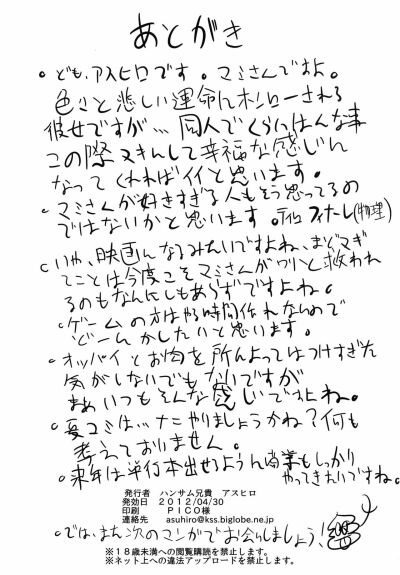 あとがき
。ども、アスヒロです。マミさんですよ。
色々と悲しい運命にホンローされる
彼女ですが…同人でくらいはんな事
この際ヌキんして幸福な感じん
なってくれればイイと思います。
。マミさんが好きすぎる人もそう思ってるの
ではないかと思います。ティロフィナーレ(物理)
。いや、映画んなるみたいですよね、まどマギ
てことは今度こそマミさんがワリと救われ
るのもなんにしもあらずですよね。
。ゲームの方はやる時間作れなんので
どーにかしたいと思います。
。オッパイとお肉を所んよってはつけすぎた
気がしないでもないですが
まぁいつもそんな感じですよね。
。夏コミは…ナニやりましょうかね?何も
考えておりません。
。来年は単行本出せるようん商業もしっかり
やってきたいですね。
発行者 ハンサム兄貴 アスヒロ
発効日 2012/04/30
印刷 PICO様
連絡先 asuhiro@kss.biglobe.ne.jp
。では、また次のマンガでお会いしましょう!
※18歳未満への閲覧購読を禁止します。
※ネット上への違法アップロードを禁止します。